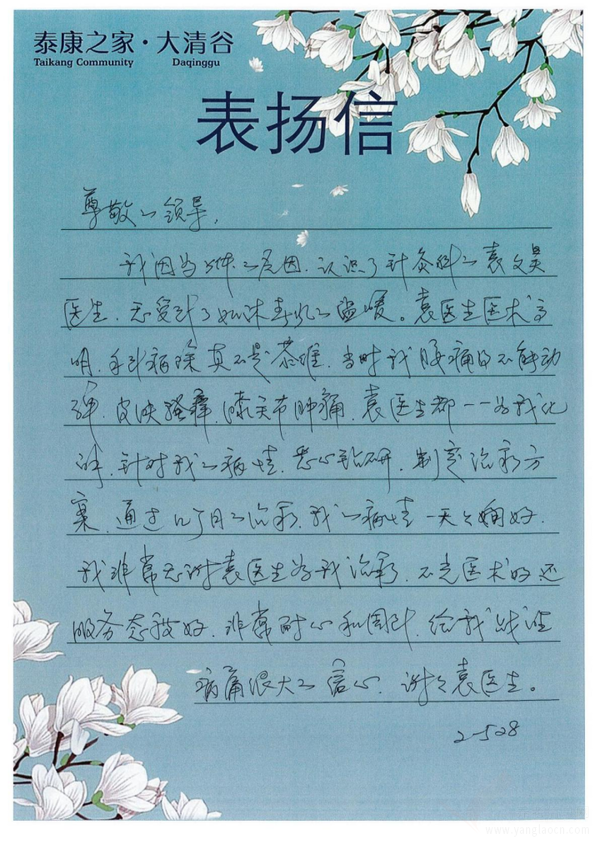 泰康之家·大清谷
Taikang Community Daqinggu
表扬信
尊敬的领导,
我因身体的原因,认识了针灸科的袁文昊
医生,感受到了如沐春风的温暖。袁医生医术高
明,手到病除真不是恭维,当时我腰痛的不能动
弹,皮肤骚痒,膝关节肿痛,袁医生都一一为我化
解,针对我的病情,悉心钻研,制定治疗方
案,通过几个月的治疗,我的病情一天天好.
我非常感谢袁医生为我治疗,不光医术好还
服务态度好,非常耐心和周到,给我战胜
病痛很大的信心,谢谢袁医生。
2-528